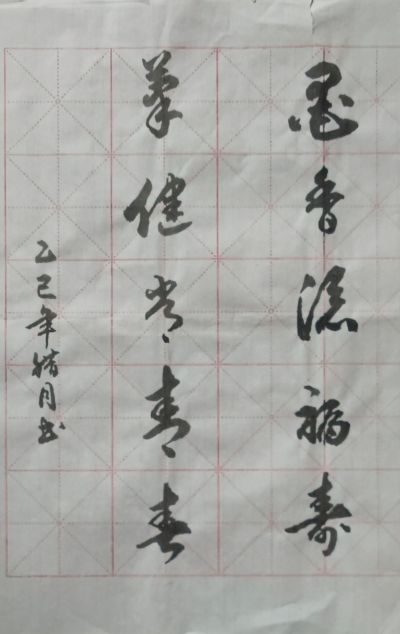 墨香添福寿
笔健常青春
乙巳年腊月书